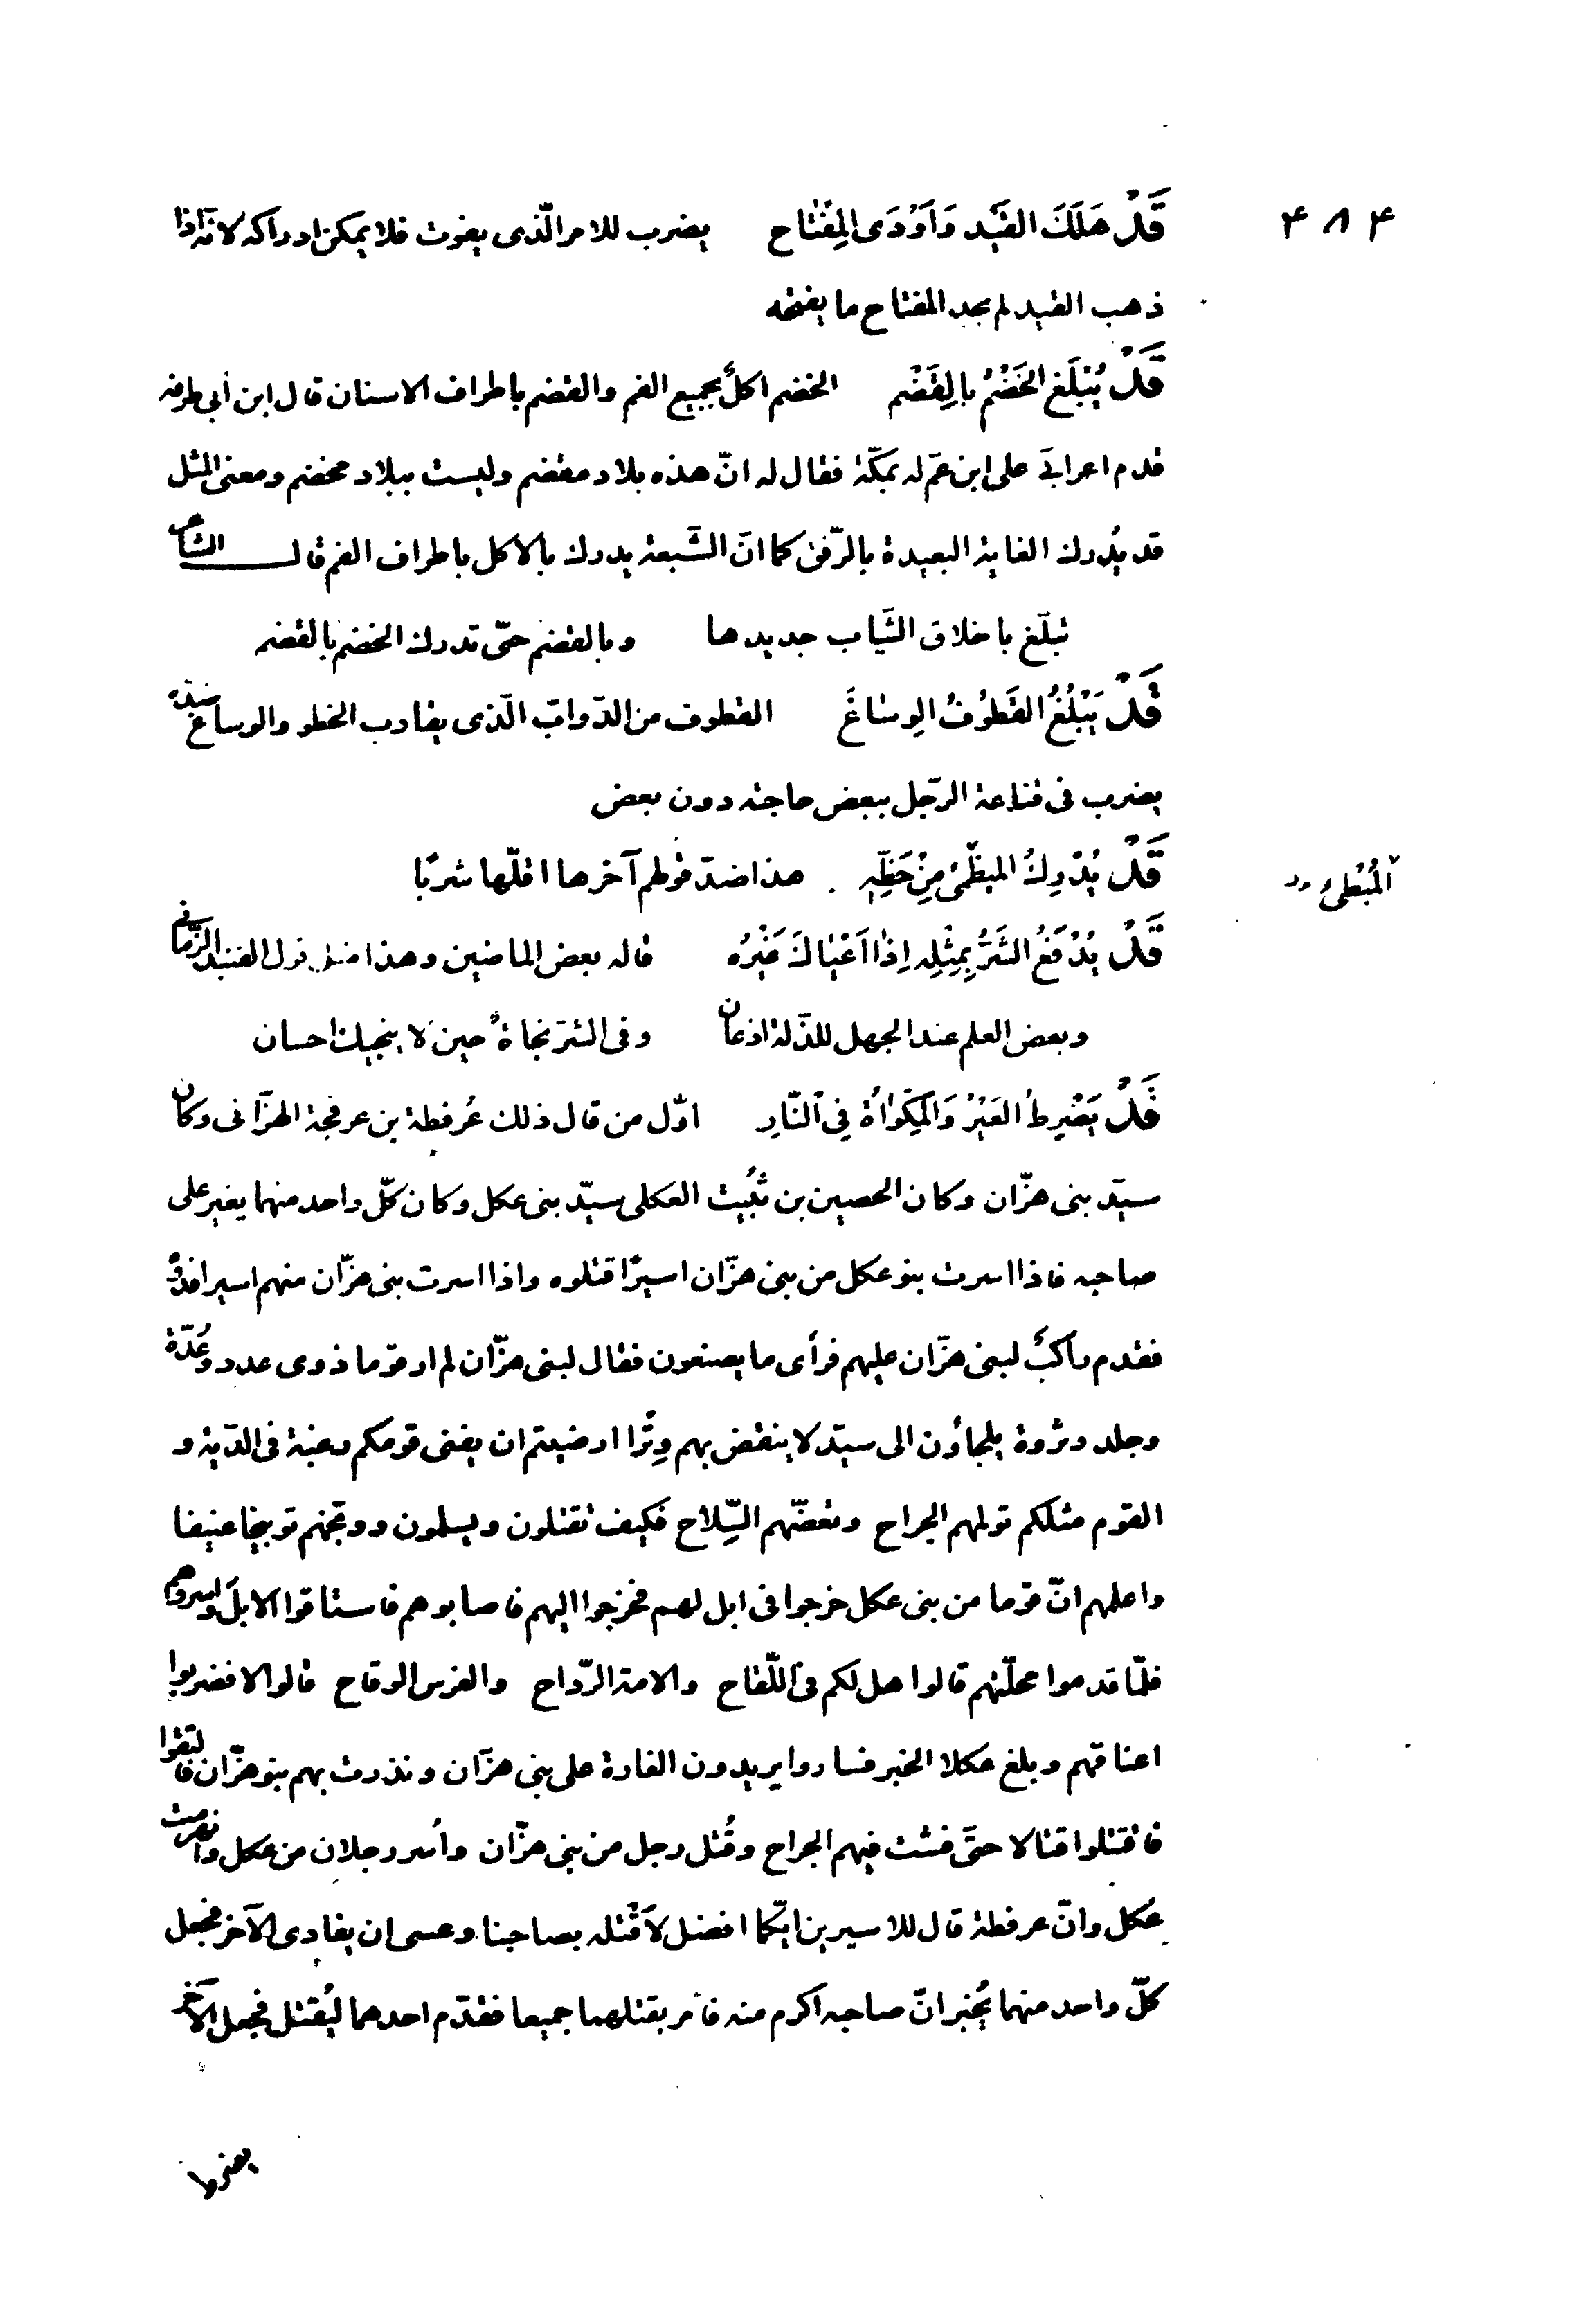 ۴۸۴
قَدْ هَلَكَ القَيْد وَاَوْدَى المِفْتاح يضرب للامر الّذى يفوت فلا يمكن ادراكه لانّه اذا
ذهب القيد لم يجد المفتاح ما يفتحه
قَدْ يُبْلَغ الخَضْمُ بالقَضْم الخضم اكلٌ بجميع الفم والقضم باطراف الاسنان قال ابن أبى طرفه
قدم اعرابىّ على ابن عمّ له بمكّة فقال له انّ هذه بلاد مقضم وليست ببلاد مخضم ومعنى المثل
قد يُدرك الغاية البعيدة بالرّفق كما انّ الشّبعة يدرك بالاكل باطراف الفم قال الشاعر
تبلّغ باخلاق الثّياب جديدها وبالقضم حتّى تدرك الخضم بالقضم
قَدْ يَبْلُغُ القَطُوْفُ الوِساعَ القطوف من الدّوابّ الّذى يقارب الخطو والوساع ضدّه
يضرب فى قناعة الرّجل ببعض حاجته دون بعض
قَدْ يُدْرِكُ المبطّئ مِنْ حَظِّهِ هذا ضدّ قولهم آخرها اقلّها شربًا
اَلْمُبْطِئُ
قَدْ يُدْفَعُ الشَرُّ بِمِثْلِه اِذا اَعْياكَ غَيْرُه قاله بعض الماضين وهذا مثل قول الفند الزّمانى
وبعض العلم عند الجهل للذّلة اذعان وفى الشرّ نجاةٌ حين لا ينجيك احسان
قَدْ يَضْرِطُ العَيْرُ وَالمِكْواةُ فِي النّارِ اوّل من قال ذلك عُرفطة بن عرفجة الهزّانى وكان
سيّد بنى هزّان وكان الحصين بن ثُبيت العكلى سيّد بنى عكل وكان كلّ واحد منهما يغير على
صاحبه فاذا اسرت بنو عكل من بنى هزّان اسيرًا قتلوه واذا اسرت بنى هزّان منهم اسيرا فدَوْه
فقدم راكبٌ لبنى هزّان عليهم فرأى ما يصنعون فقال لبنى هزّان لم ار قوما ذوى عدد وعُدّة
وجلد وثروة يلجأون الى سيّد لا ينقض بهم وِترًا ارضيتم ان يفنى قومكم رغبة فى الدّية و
القوم مثلكم تولمهم الجراح وتعضّهم السِّلاح فكيف تقتلون ويسلمون ووبّخهم توبيخا عنيفا
واعلمهم انّ قوما من بنى عكل خرجوا فى ابل لهم فخرجوا اليهم فاصابوهم فاستاقوا الابل واسروهم
فلمّا قدموا محلّتهم قالوا هل لكم فى اللّقاح والامة الرّداح والفرس الوقاح قالوا لا فضربوا
اعناقهم وبلغ عكلا الخبر فساروا يريدون الغارة على بنى هزّان ونذرت بهم بنو هزّان فالتقوا
فاقتتلوا قتالا حتّى فشت فيهم الجراح وقُتل رجل من بنى هزّان وأسر رجلان من عكل وانهزمت
عكل وانّ عرفطة قال للاسيرين ايّكما افضل لاَقْتله بصاحبنا وعسى ان يفادى الآخر فجعل
كلّ واحد منهما يُخبر انّ صاحبه اكرم منه فأمر بقتلهما جميعا فقدّم احدهما ليُقتل فجعل الآخر
يضرط